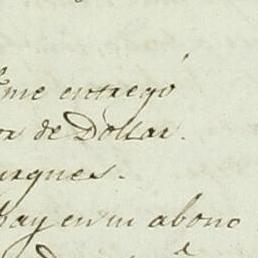 me entregó
or de Dollar.
urques.
hay en su abono